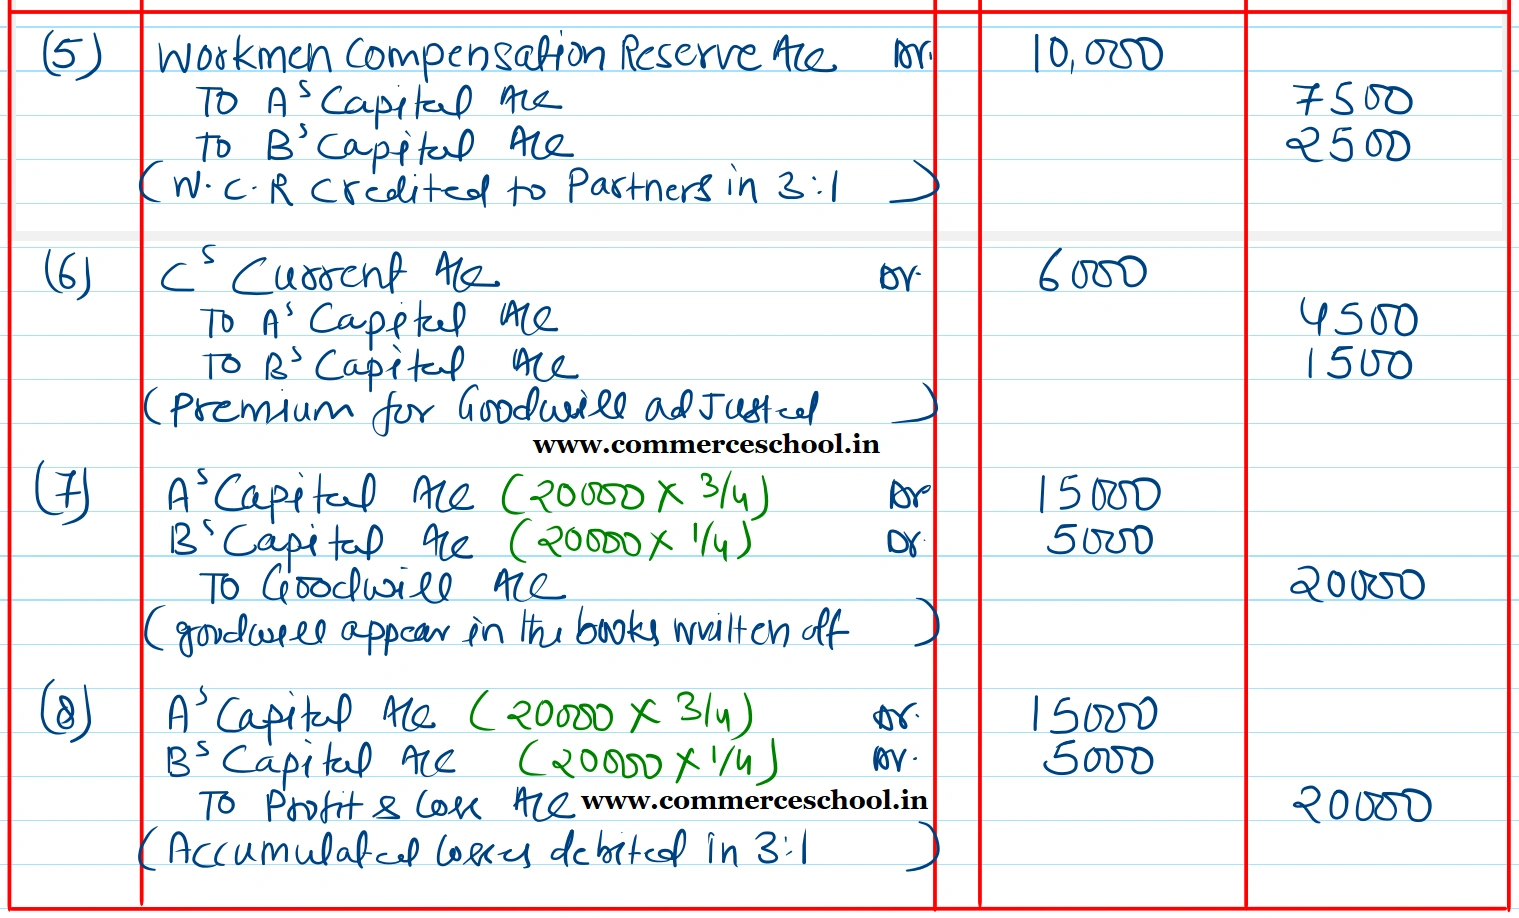 (5) Workmen Compensation Reserve A/c Dr. 10,000
To A's Capital A/c 7500
To B's Capital A/c 2500
(W.C.R Credited to Partners in 3:1)
(6) C's Current A/c Dr. 6000
To A's Capital A/c 4500
To B's Capital A/c 1500
(Premium for Goodwill adjusted)
www.commerceschool.in
(7) A's Capital A/c (20000 x 3/4) Dr 15000
B's Capital A/c (20000 x 1/4) Dr. 5000
To Goodwill A/c 20000
(goodwill appear in the books written off)
(8) A's Capital A/c (20000 x 3/4) Dr. 15000
B's Capital A/c (20000 x 1/4) Dr. 5000
To Profit & Loss A/c www.commerceschool.in 20000
(Accumulated losses debited in 3:1)